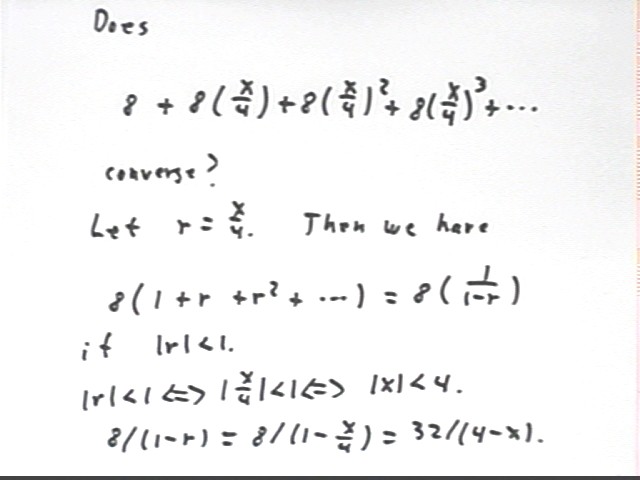 Does
8 + 8(x/4) + 8(x/4)² + 8(x/4)³ + ...
converse?
Let r = x/4. Then we have
8(1 + r + r² + ...) = 8(1/(1-r))
if |r| < 1.
|r| < 1 ⇔ |x/4| < 1 ⇔ |x| < 4.
8/(1-r) = 8/(1-x/4) = 32/(4-x).